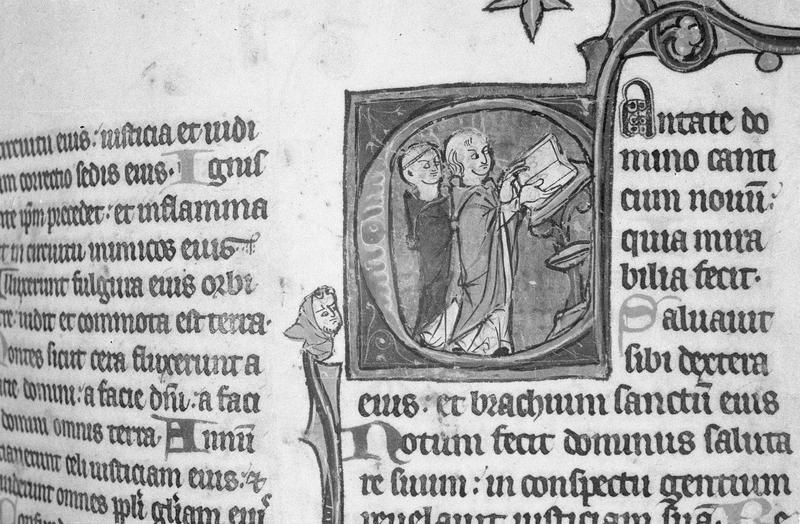 circuitu eius: iusticia et iudi
um correctio sedis eius· Ignis
ante ip̄m precedet: et inflamma
it in circuitu inimicos eius
Illuxerunt fulgura eius orbi
re: uidit et commota est terra·
Montes sicut cera fluxerunt a
facie domini: a facie dn̄i: a faci
domini omnis terra· Annū
cianerunt celi iusticiam eius: &
uiderunt omnes ppl̄i glīam eiuˢ
Cantate do
mino canti
cum nouū:
quia mira
bilia fecit·
Saluauit
sibi dextera
eius: et brachium sanctū eius
Notum fecit dominus saluta
re suum: in conspectu gentium
reuelauit iusticiam suā·